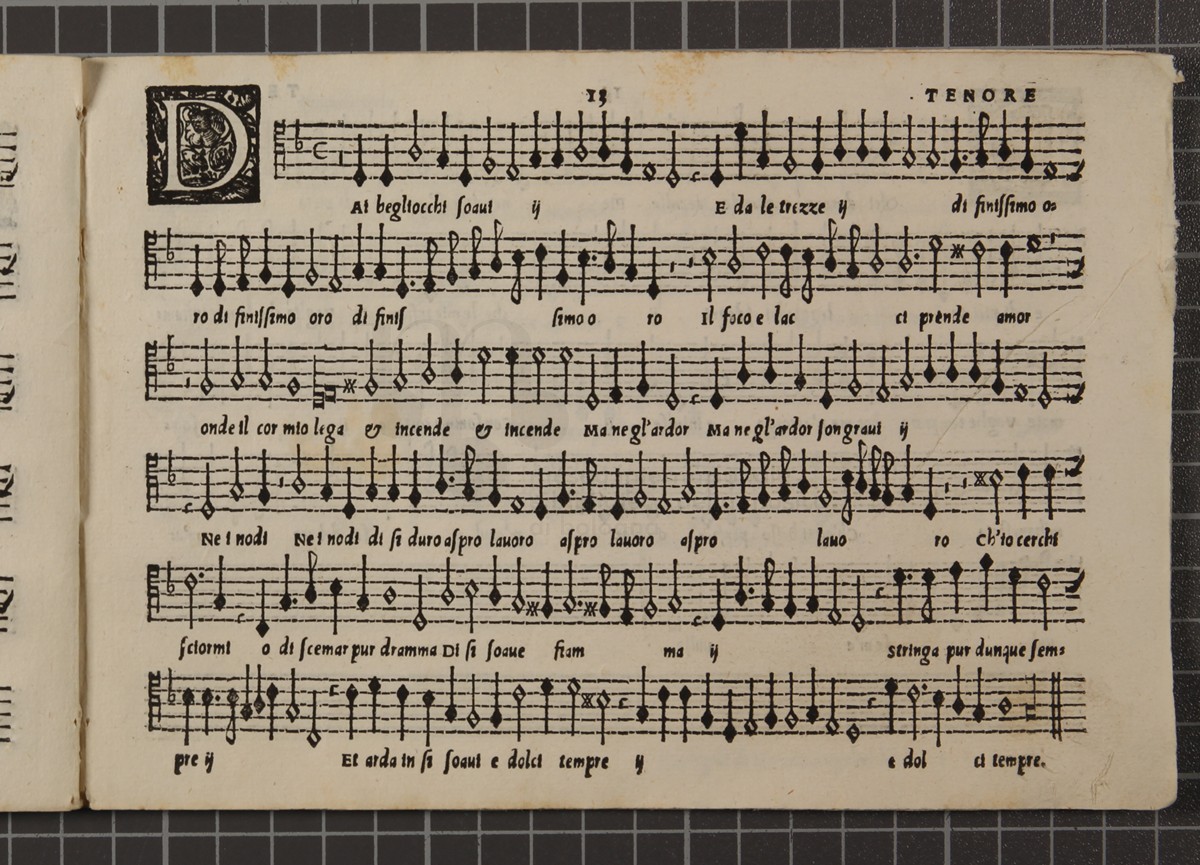 13 TENORE
DAi begliocchi soaui ij E da le trezze ij di finissimo o=
ro di finissimo oro di finis simo o ro Il foco e lac ci prende amor
onde il cor mio lega & incende & incende Ma ne gl'ardor Ma ne gl'ardor son graui ij
Ne i nodi Ne i nodi di si duro aspro lauoro aspro lauoro aspro lauo ro Ch'io cerchi
sciormi o di scemar pur dramma Di si soaue fiam ma ij stringa pur dunque sem=
pre ij Et arda in si soaui e dolci tempre ij e dol ci tempre.